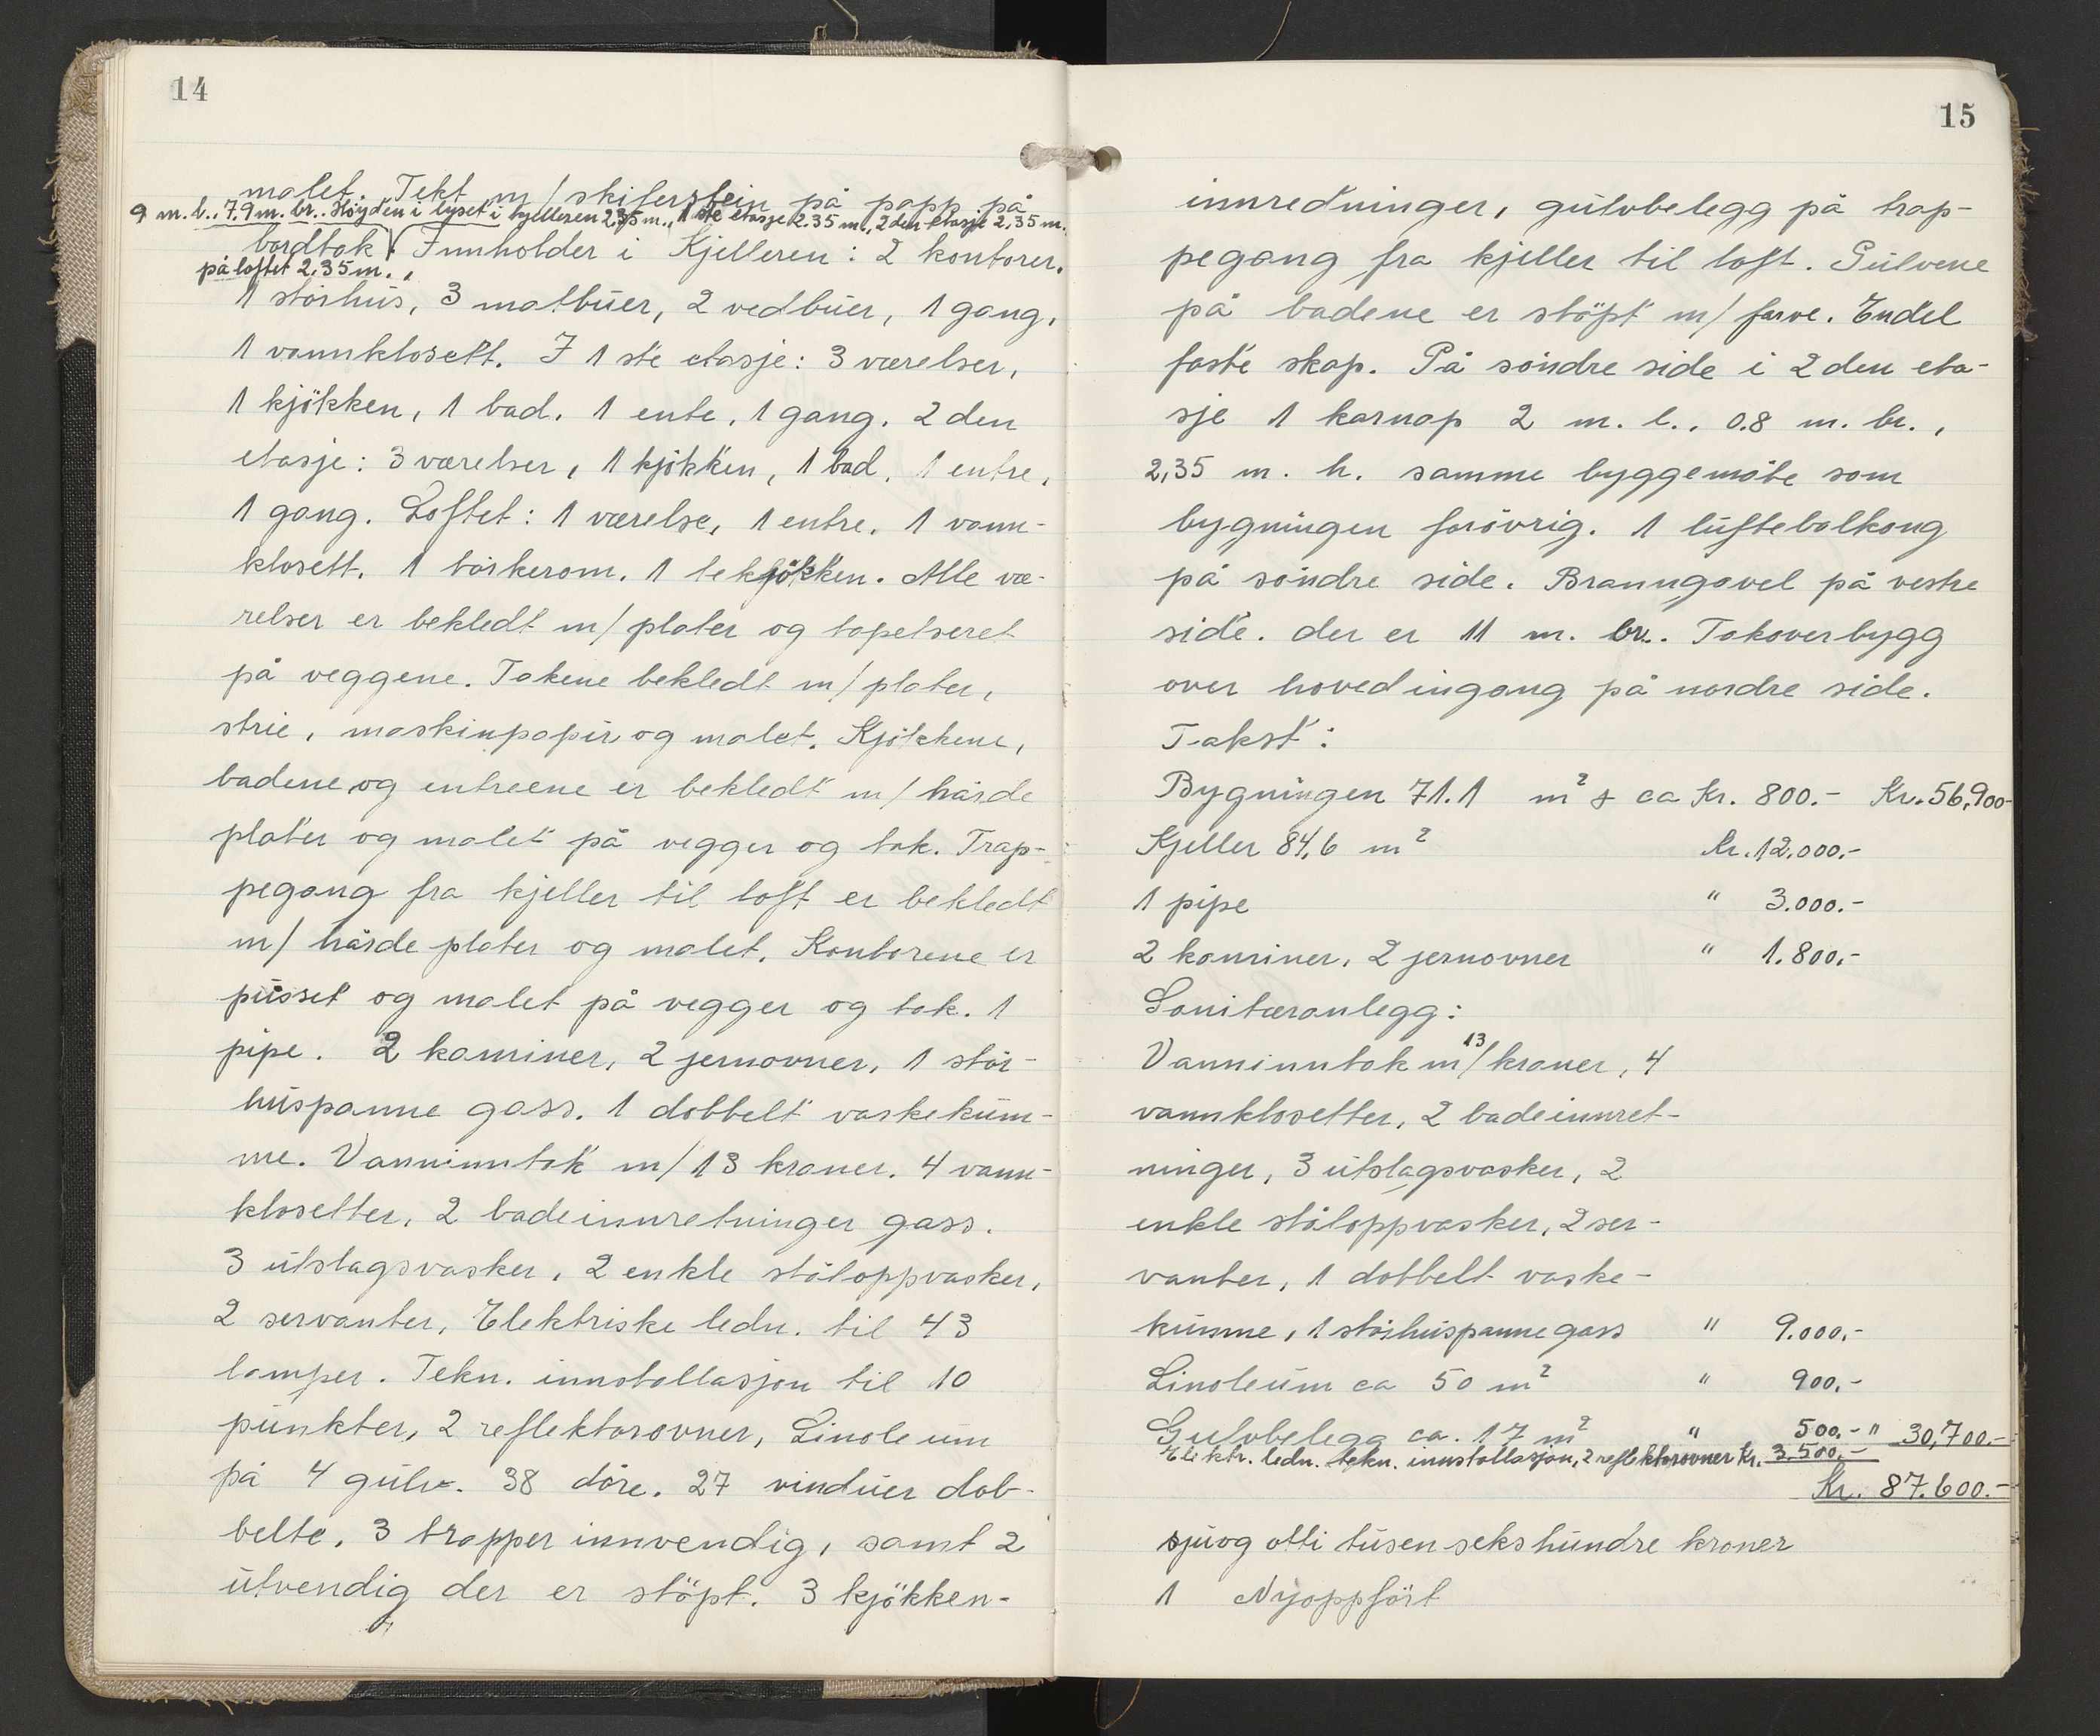 14
malet. Tekt m/skiferstein på papp på
9 m. l., 7,9 m. br.. Höyden i lyset i kjelleren 2,35 m., 1 ste etasje 2.35 m., 2 den etasje 2,35 m.
bordtak. Innholder i Kjelleren: 2 kontorer.
på loftet 2,35 m.
1 störhus, 3 matbuer, 2 vedbuer, 1 gang,
1 vannklosett. I 1 ste etasje: 3 værelser,
1 kjökken, 1 bad. 1 ente. 1 gang. 2 den
etasje: 3 værelser, 1 kjökken, 1 bad. 1 entre,
1 gang. Loftet: 1 værelse, 1 entre. 1 vann-
klosett. 1 törkerom. 1 tekjökken. Alle væ-
relser er bekledt m/plater og tapetseret
på veggene. Takene bekledt m/plater,
strie, maskinpapir og malet. Kjökkene,
badene og entreene er bekledt m/hårde
plater og malet på vegger og tak. Trap-
pegang fra kjeller til loft er bekledt
m/hårde plater og malet. Kontorene er
pusset og malet på vegger og tak. 1
pipe. 2 kaminer, 2 jernovner, 1 stör-
huspanne gass. 1 dobbelt vaskekum-
me. Vanninntak m/13 kraner. 4 vann-
klosetter, 2 badeinnretninger gass.
3 utslagsvasker, 2 enkle ståloppvasker,
2 servanter, Elektriske ledn. til 43
lamper. Tekn. innstallasjon til 10
punkter, 2 reflektorovner, Linoleum
på 4 gulv. 38 döre. 27 vinduer dob-
belte. 3 trapper innvendig, samt 2
utvendig der er stöpt. 3 kjökken-
15
innredninger, gulvbelegg på trap-
pegang fra kjeller til loft. Gulvene
på badene er stöpt m/farve. Endel
faste skap. På söndre side i 2 den eta-
sje 1 karnap 2 m. l., 0.8 m. br.,
2,35 m. h. samme byggemåte som
bygningen forövrig. 1 luftebalkong
på söndre side. Branngavel på vestre
side. der er 11 m. br.. Takoverbygg
over hovedingang på nordre side.
Takst:
Bygningen 71.1 m² à ca Kr. 800.- Kr. 56,900-
Kjeller 84,6 m² Kr. 12.000.-
1 pipe " 3.000.-
2 kaminer, 2 jernovner " 1.800.-
Sanitæranlegg:
Vanninntak m/13 kraner, 4
vannklosetter, 2 badeinnret-
ninger, 3 utslagsvasker, 2
enkle ståloppvasker, 2 ser-
vanter, 1 dobbelt vaske-
kumme, 1 störhuspanne gass " 9.000.-
Linoleum ca 50 m² " 900.-
Gulvbelegg ca. 17 m² " 500.- " 30,700.-
Elektr. ledn. tekn. innstallasjon, 2 reflektorovner Kr. 3.500.-
Kr. 87.600.-
sjuog otti tusen sekshundre kroner
1 Nyoppfört